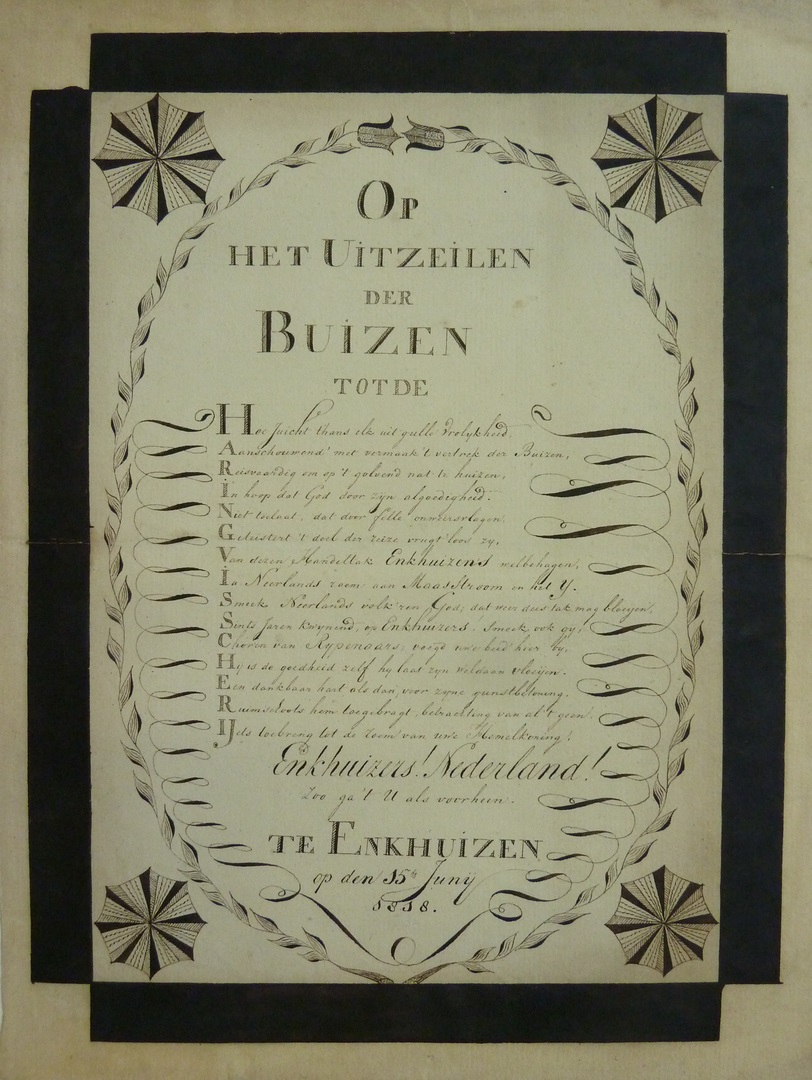 OP
HET UITZEILEN
DER
BUIZEN
TOT DE
Hoe juicht thans elk uit gulle Vrolykheid,
Aanschouwend' met vermaak 't vertrek der Buizen,
Reisvaardig om op 't golvend nat te huizen,
In hoop dat God door zyn algoedigheid.
Niet toelaat, dat door felle onweersvlagen,
Geteistert 't doel der reize vrugt'loos zy,
Van dezen Handeltak Enkhuizen's welbehagen,
Ja Neerlands roem aan Maas Stroom en het Y.
Smeek Neerlands volk 'ren God, dat weer dees tak mag bloeijen,
Sints Jaren kwynend, op Enkhuizers. Smeek ook gy,
Chooren van Rypenaars, voegd uwe beed' hier by,
Hy is de goedheid zelf hy laat zyn weldaan vloeijen.
Een dankbaar hart als dan, voor zyne gunstbetoning.
Ruimschoots hem toegebragt, betrachting van al 't geen
IJets toebreng tot de Roem van uwe Hemelkoning!
Enkhuizers! Nederland!
Zoo ga 't U als voorheen.
TE ENKHUIZEN
op den 15e Junij
1818.